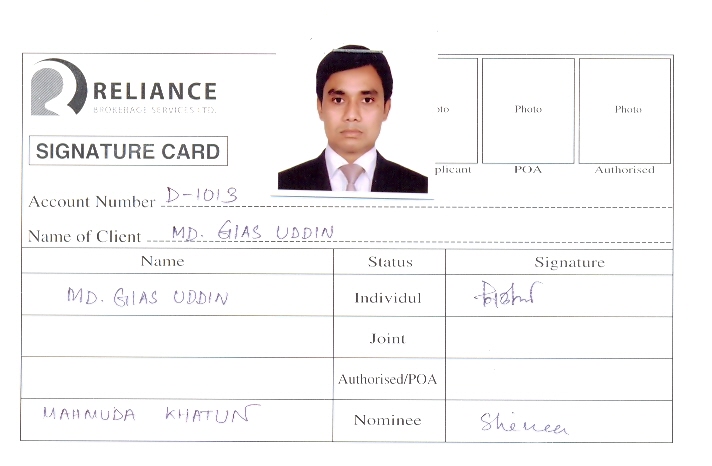 RELIANCE
BROKERAGE SERVICES LTD.
SIGNATURE CARD
Photo Photo
plicant POA Authorised
Account Number D-1013
Name of Client MD. GIAS UDDIN
Name Status Signature
MD. GIAS UDDIN Individul
Joint
Authorised/POA
MAHMUDA KHATUN Nominee